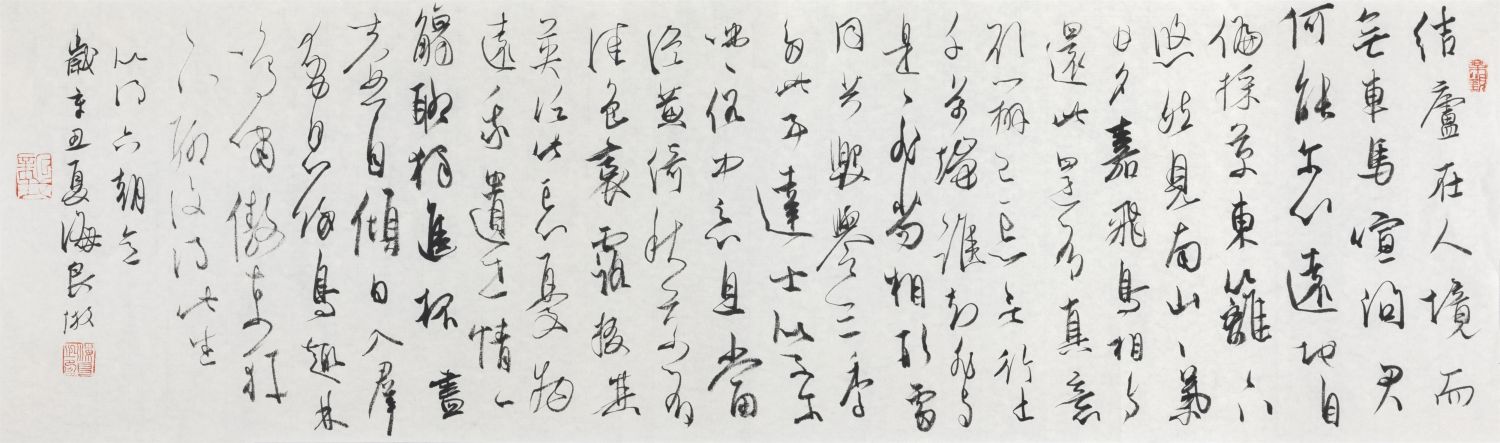 结廬在人境而
无車馬喧问君
何能尔心遠地自
偏採菊東籬下
悠然見南山山氣
日夕嘉飛鳥相与
還此有真意
已忘言行止
千萬端誰知非与
是是非苟相形雷
同共毀譽三季
多此事達士似不尔
咄咄俗中惡且當
從黄绮秋菊有
佳色裛露掇其
英泛此忘憂物
遠我遺世情一
觴雖獨進杯盡
壶自傾日入群
動息歸鳥趨林
鳴嘯傲東軒
下聊復得此生
六朝
歲辛丑夏海良